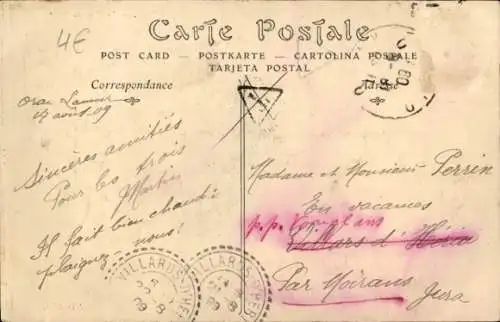 4€
Carte Postale
POST CARD — POSTKARTE — CARTOLINA POSTALE
TARJETA POSTAL
Correspondance
Adresse
Oran
17 août 09
Sincères amitiés
Pour les trois
Il fait bien chaud :
plaignez-nous !
Madame et Monsieur Perrin
En vacances
p.p.
Villars d'Héria
Par Moirans
Jura
VILLARDS
VILLARDS